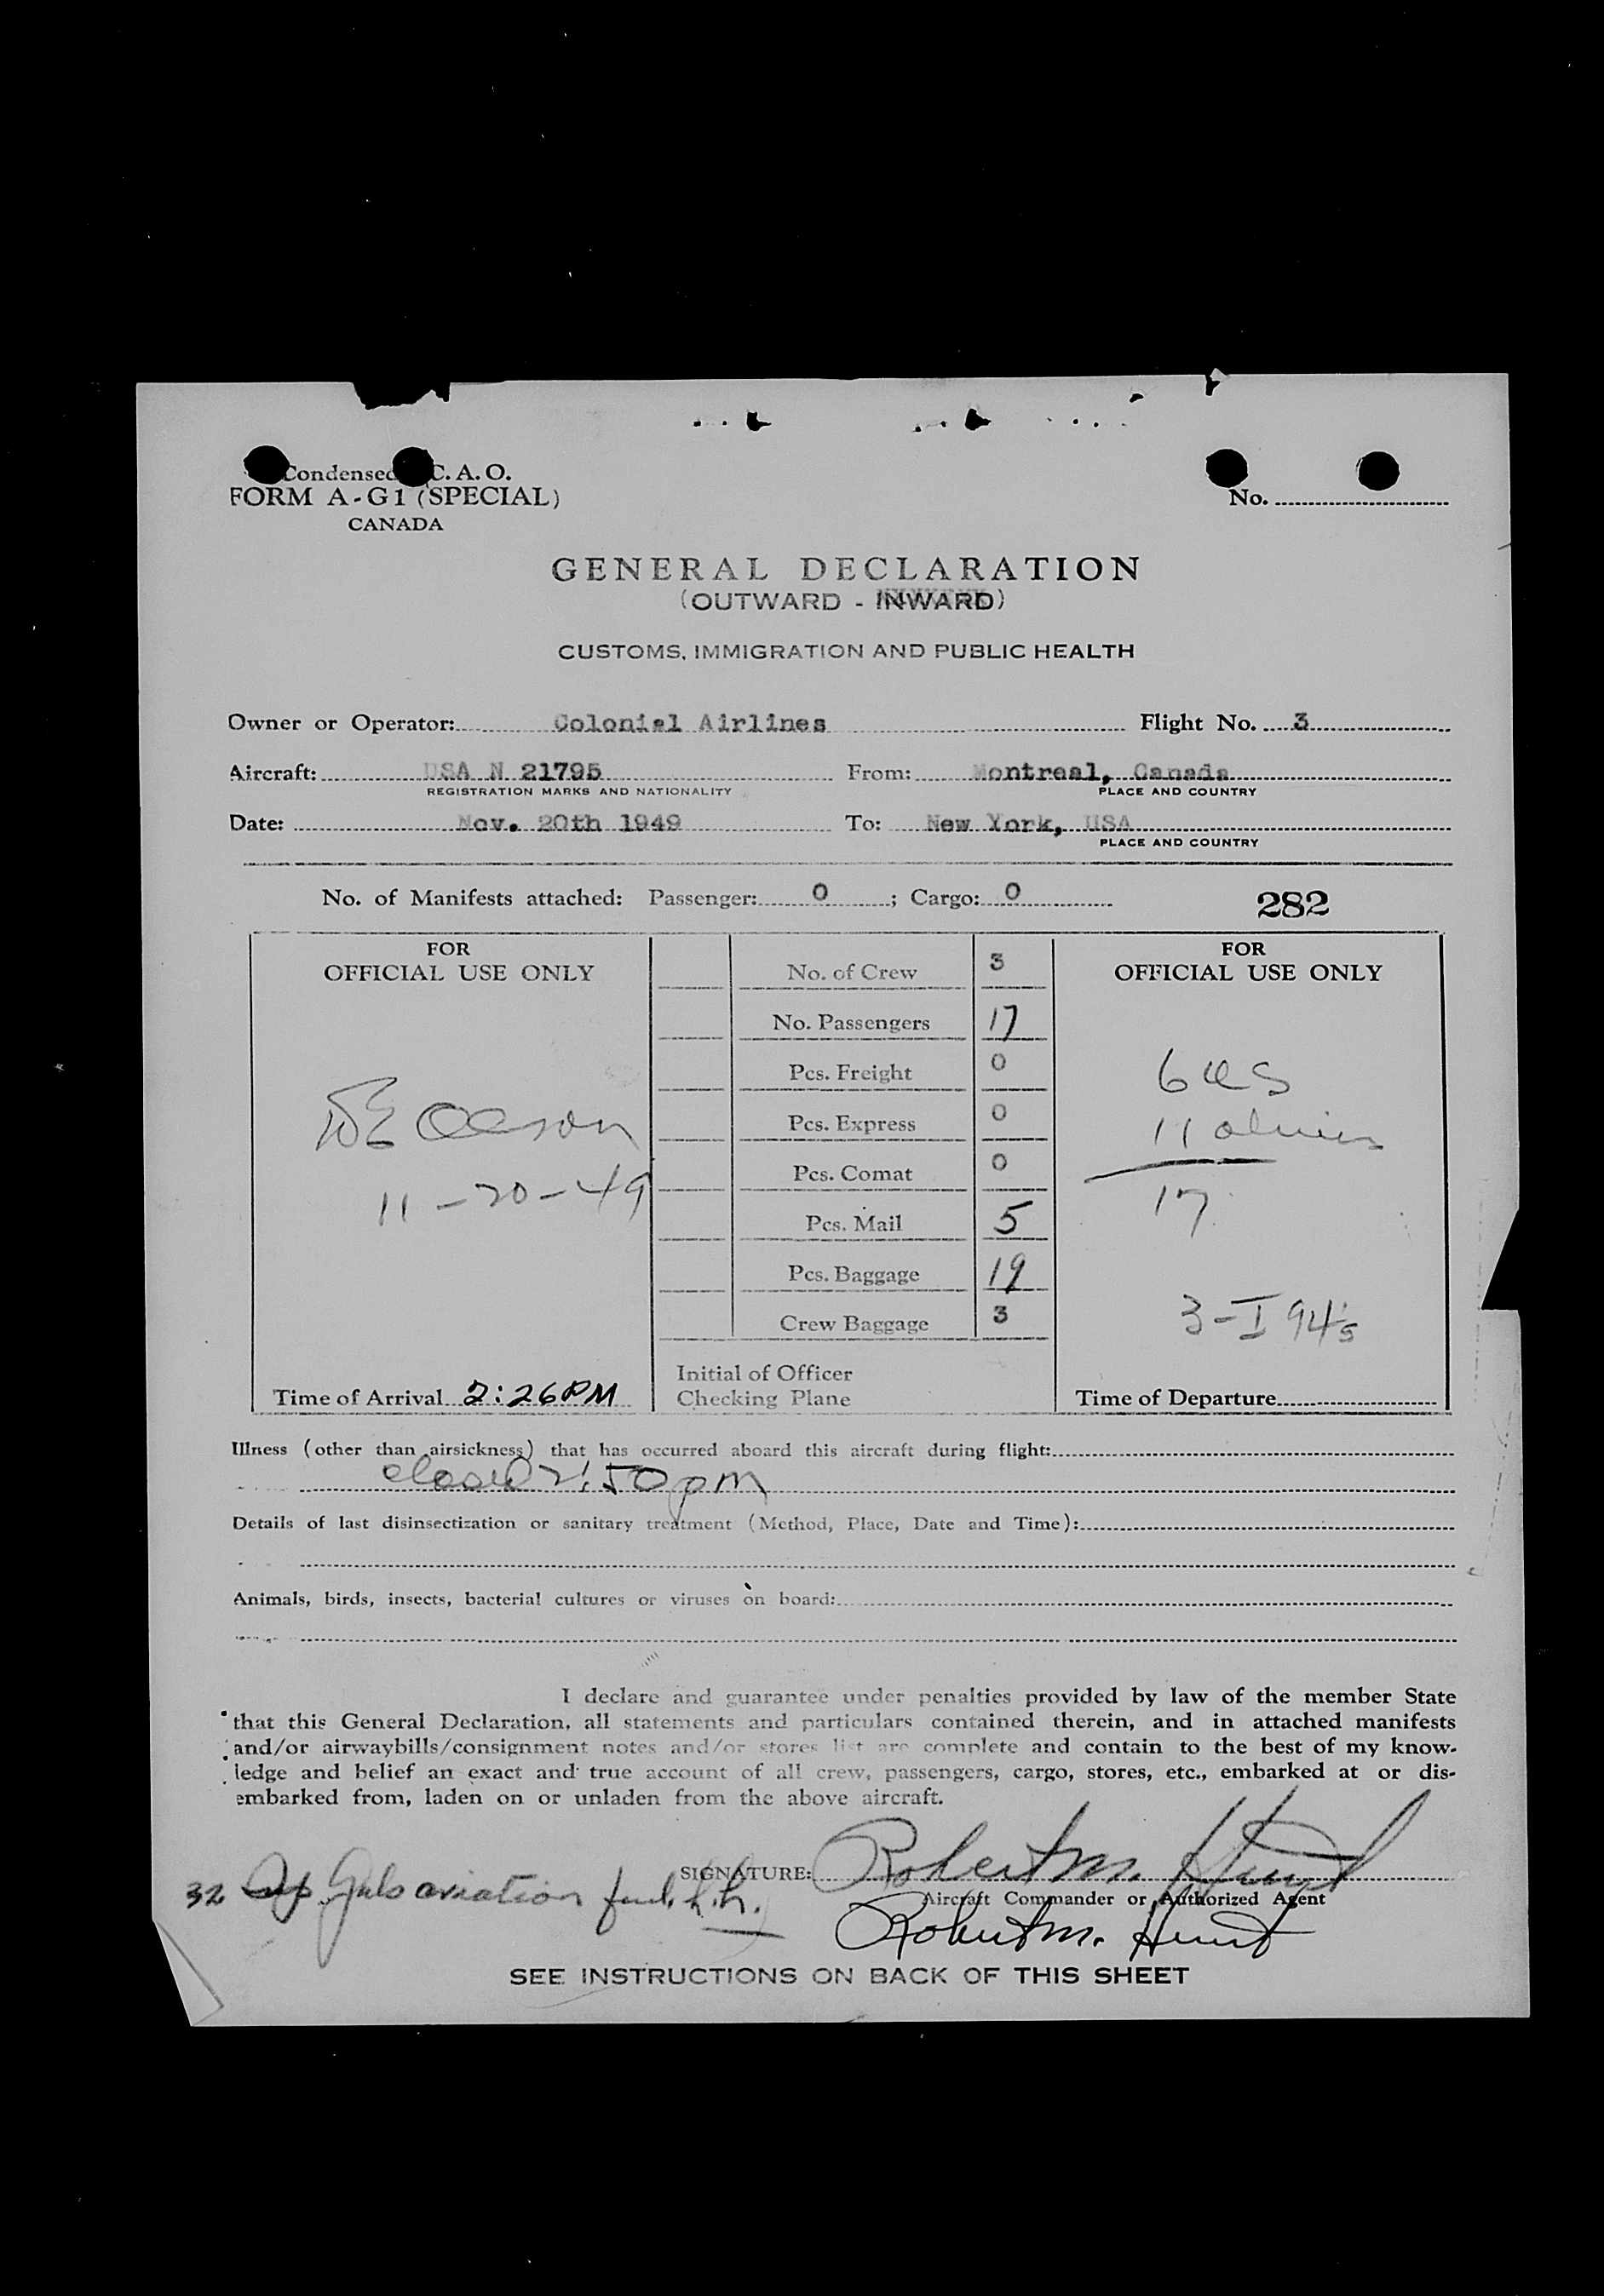 Condensed C. A. O.
FORM A-G1 (SPECIAL)
CANADA
No.
GENERAL DECLARATION
(OUTWARD - INWARD)
CUSTOMS, IMMIGRATION AND PUBLIC HEALTH
Owner or Operator: Colonial Airlines Flight No. 3
Aircraft: USA N 21795 From: Montreal, Canada
REGISTRATION MARKS AND NATIONALITY PLACE AND COUNTRY
Date: Nov. 20th 1949 To: New York, USA
PLACE AND COUNTRY
No. of Manifests attached: Passenger: 0 ; Cargo: 0 282
FOR
OFFICIAL USE ONLY
Olson
11-20-49
Time of Arrival 2:26PM
No. of Crew 3
No. Passengers 17
Pcs. Freight 0
Pcs. Express 0
Pcs. Comat 0
Pcs. Mail 5
Pcs. Baggage 19
Crew Baggage 3
Initial of Officer
Checking Plane
FOR
OFFICIAL USE ONLY
6 US
11 aliens
17
3-I 94's
Time of Departure
Illness (other than airsickness) that has occurred aboard this aircraft during flight:
2:50 pm
Details of last disinsectization or sanitary treatment (Method, Place, Date and Time):
Animals, birds, insects, bacterial cultures or viruses on board:
I declare and guarantee under penalties provided by law of the member State
that this General Declaration, all statements and particulars contained therein, and in attached manifests
and/or airwaybills/consignment notes and/or stores list are complete and contain to the best of my know-
ledge and belief an exact and true account of all crew, passengers, cargo, stores, etc., embarked at or dis-
embarked from, laden on or unladen from the above aircraft.
SIGNATURE: Robert M. Hunt
Aircraft Commander or Authorized Agent
32 Gals aviation fuel
Robert M. Hunt
SEE INSTRUCTIONS ON BACK OF THIS SHEET